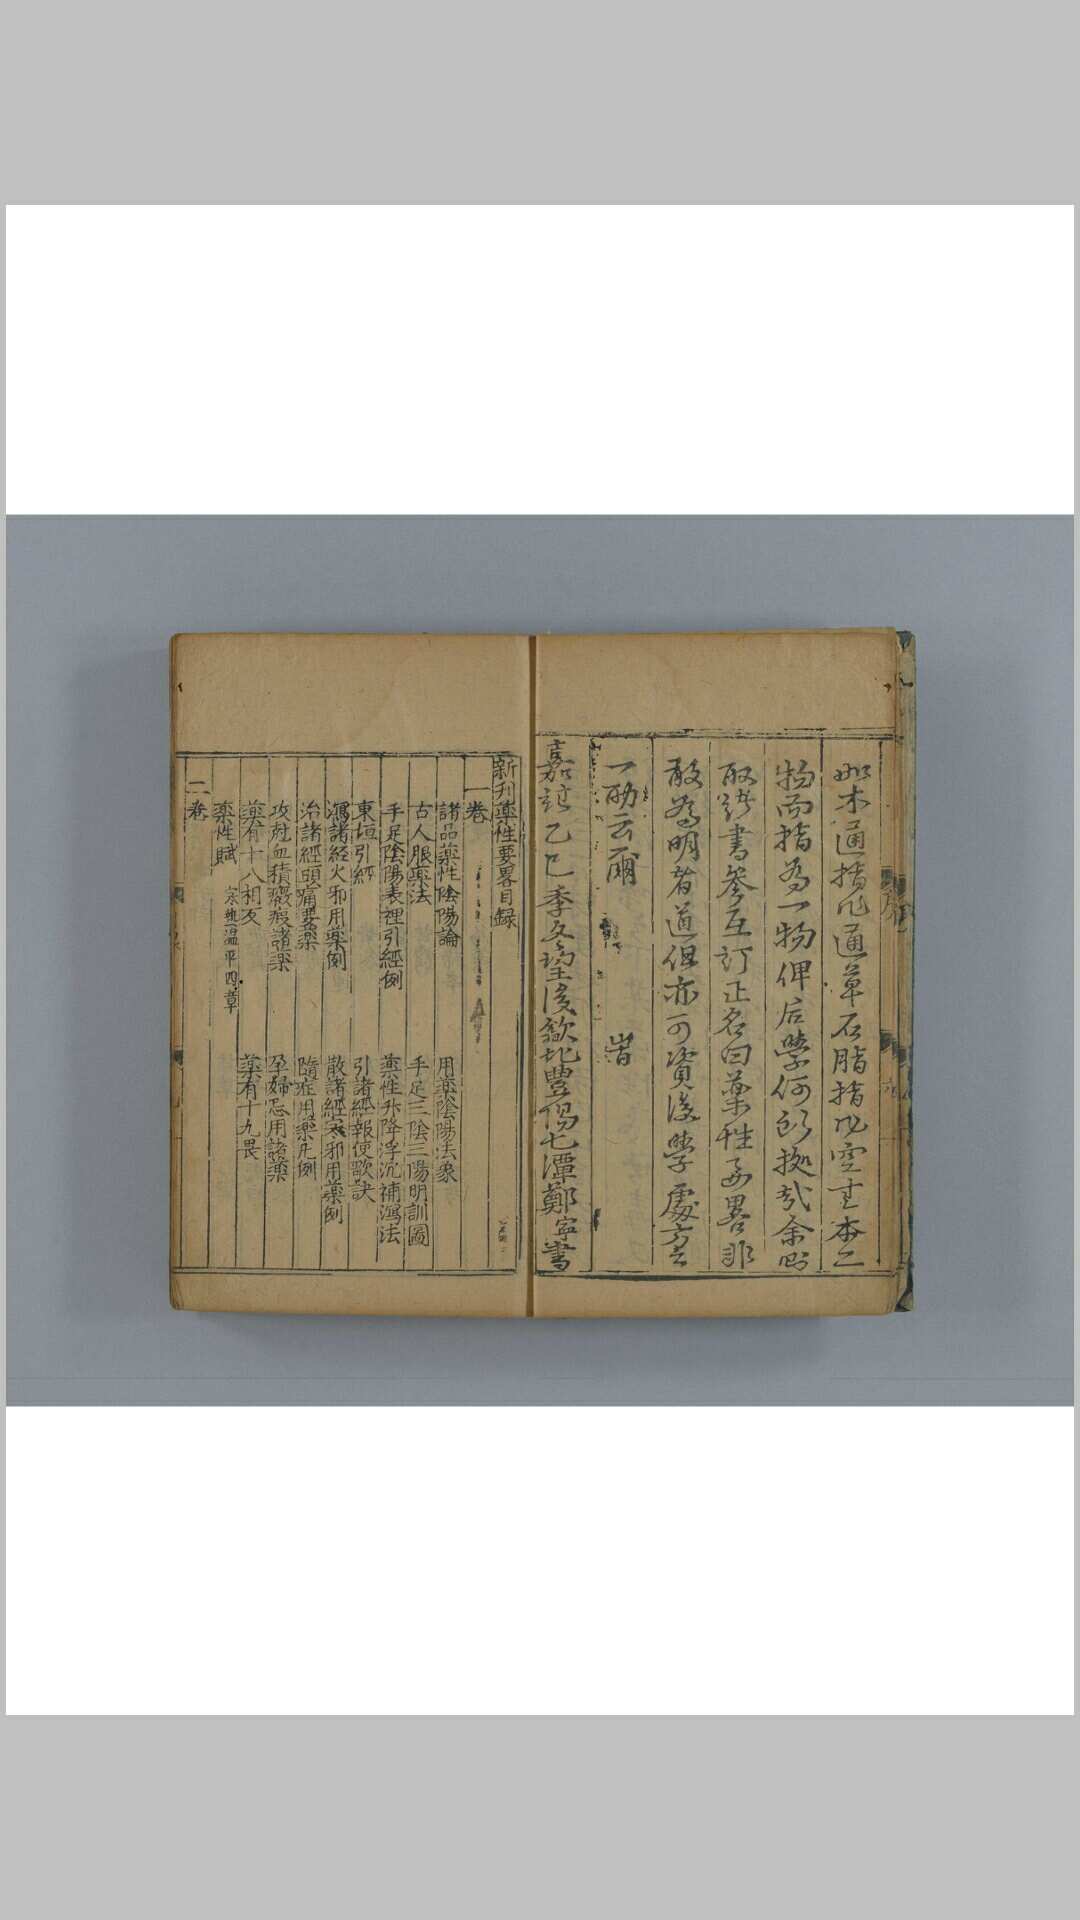 如木通指爲通草石脂指爲空青本二
物而指爲一物俾后學何所據哉余
取諸書參互訂正名曰藥性要畧非
敢爲明者道但亦可資後學處方之
一助云爾 旹
嘉靖乙巳季冬望後歙北豐陽七潭鄭寧書
新刊藥性要畧目録
一卷
諸品藥性陰陽論 用藥陰陽法象
古人服藥法 手足三陰三陽明訓圖
手足陰陽表裡引經例 藥性升降浮沉補瀉法
東垣引經 引諸經報使歌訣
瀉諸經火邪用藥例 散諸經寒邪用藥例
治諸經頭痛要藥 隨症用藥凡例
攻尅血積癥瘕諸藥 孕婦忌用諸藥
藥有十八相反 藥有十九畏
藥性賦 寒熱温平四章
二卷